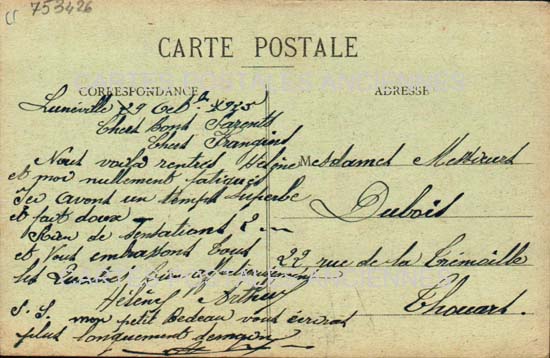 753426
CARTE POSTALE
CARTES POSTALES ANCIENNES
CORRESPONDANCE
ADRESSE
Lunéville 29 Oct
Chers Bons Parents
Chers Frangins
Nous voilà rentrés Hélène
et moi nullement fatigués
Ici avons un temps superbe
et fait doux
Rien de sensationel
et Vous embrassons Tous
les
Hélène Arthur
P. S. mon petit Bedeau vous écrirai
plus longuement demain
Mesdames Messieurs
Dubois
22 rue de la Trémoille
Thouars.